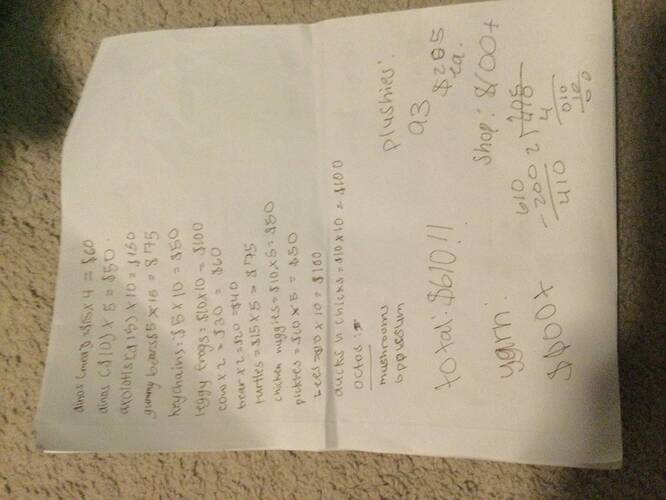 dinos (mred) $15 x 4 = $60
dinos ($10) x 5 = $50
axolotls ($15) x 10 = $150
gummy bears $5 x 15 = $75
keychains: $5 x 10 = $50
leggy frogs = $10 x 10 = $100
cow x 2 = $30 = $60
bear x 2 = $20 = $40
turtles = $15 x 5 = $75
chicken nuggies = $10 x 5 = $50
pickles = $10 x 5 = $50
bees = $10 x 10 = $100
ducks n chicks = $10 x 10 = $100
octos:
mushrooms
oppussum
plushies:
93
$205
ea.
total: $610!!
yarn:
$100+
shop: $100+
610
- 200
410
2
4
010
10
00